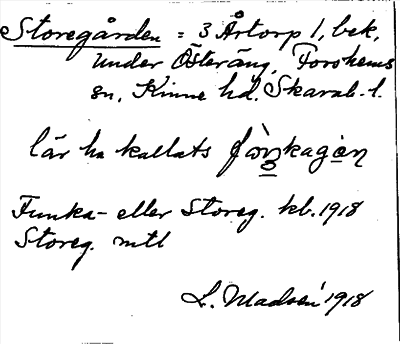 Storegården = 3 Årtorp 1, bek.
under Österäng, Forshems
sn, Kinne hd. Skarab. l.
lär ha kallats
Funka- eller Storeg. kb. 1918
Storeg. mtl
L. Madsén 1918